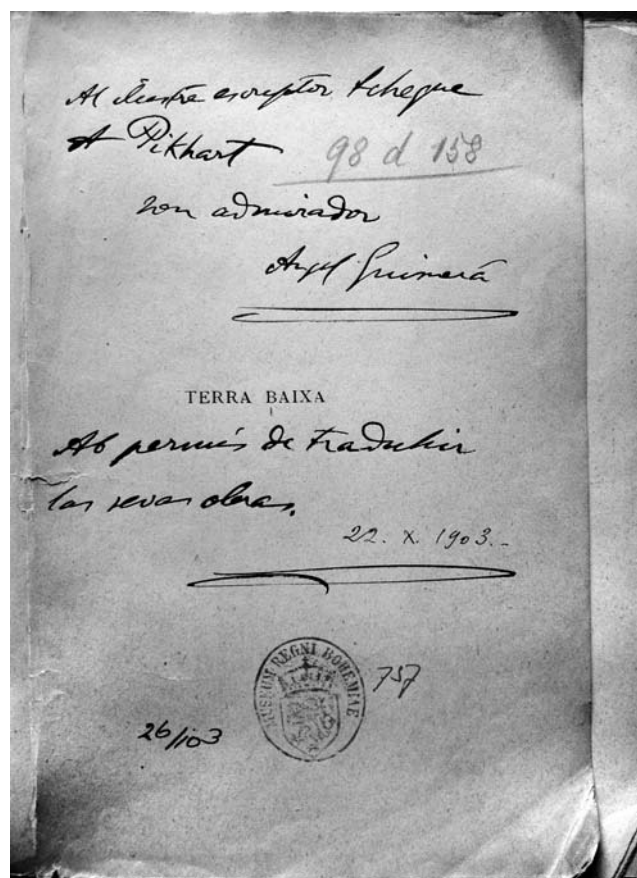 Al ilustre escriptor tcheque
A Pikhart
98 d 158
son admirador
Angel Guimerá
TERRA BAIXA
Ab permís de traduhir
las sevas obras.
22. X. 1903.-
MUSEUM REGNI BOHEMIAE
757
26/103